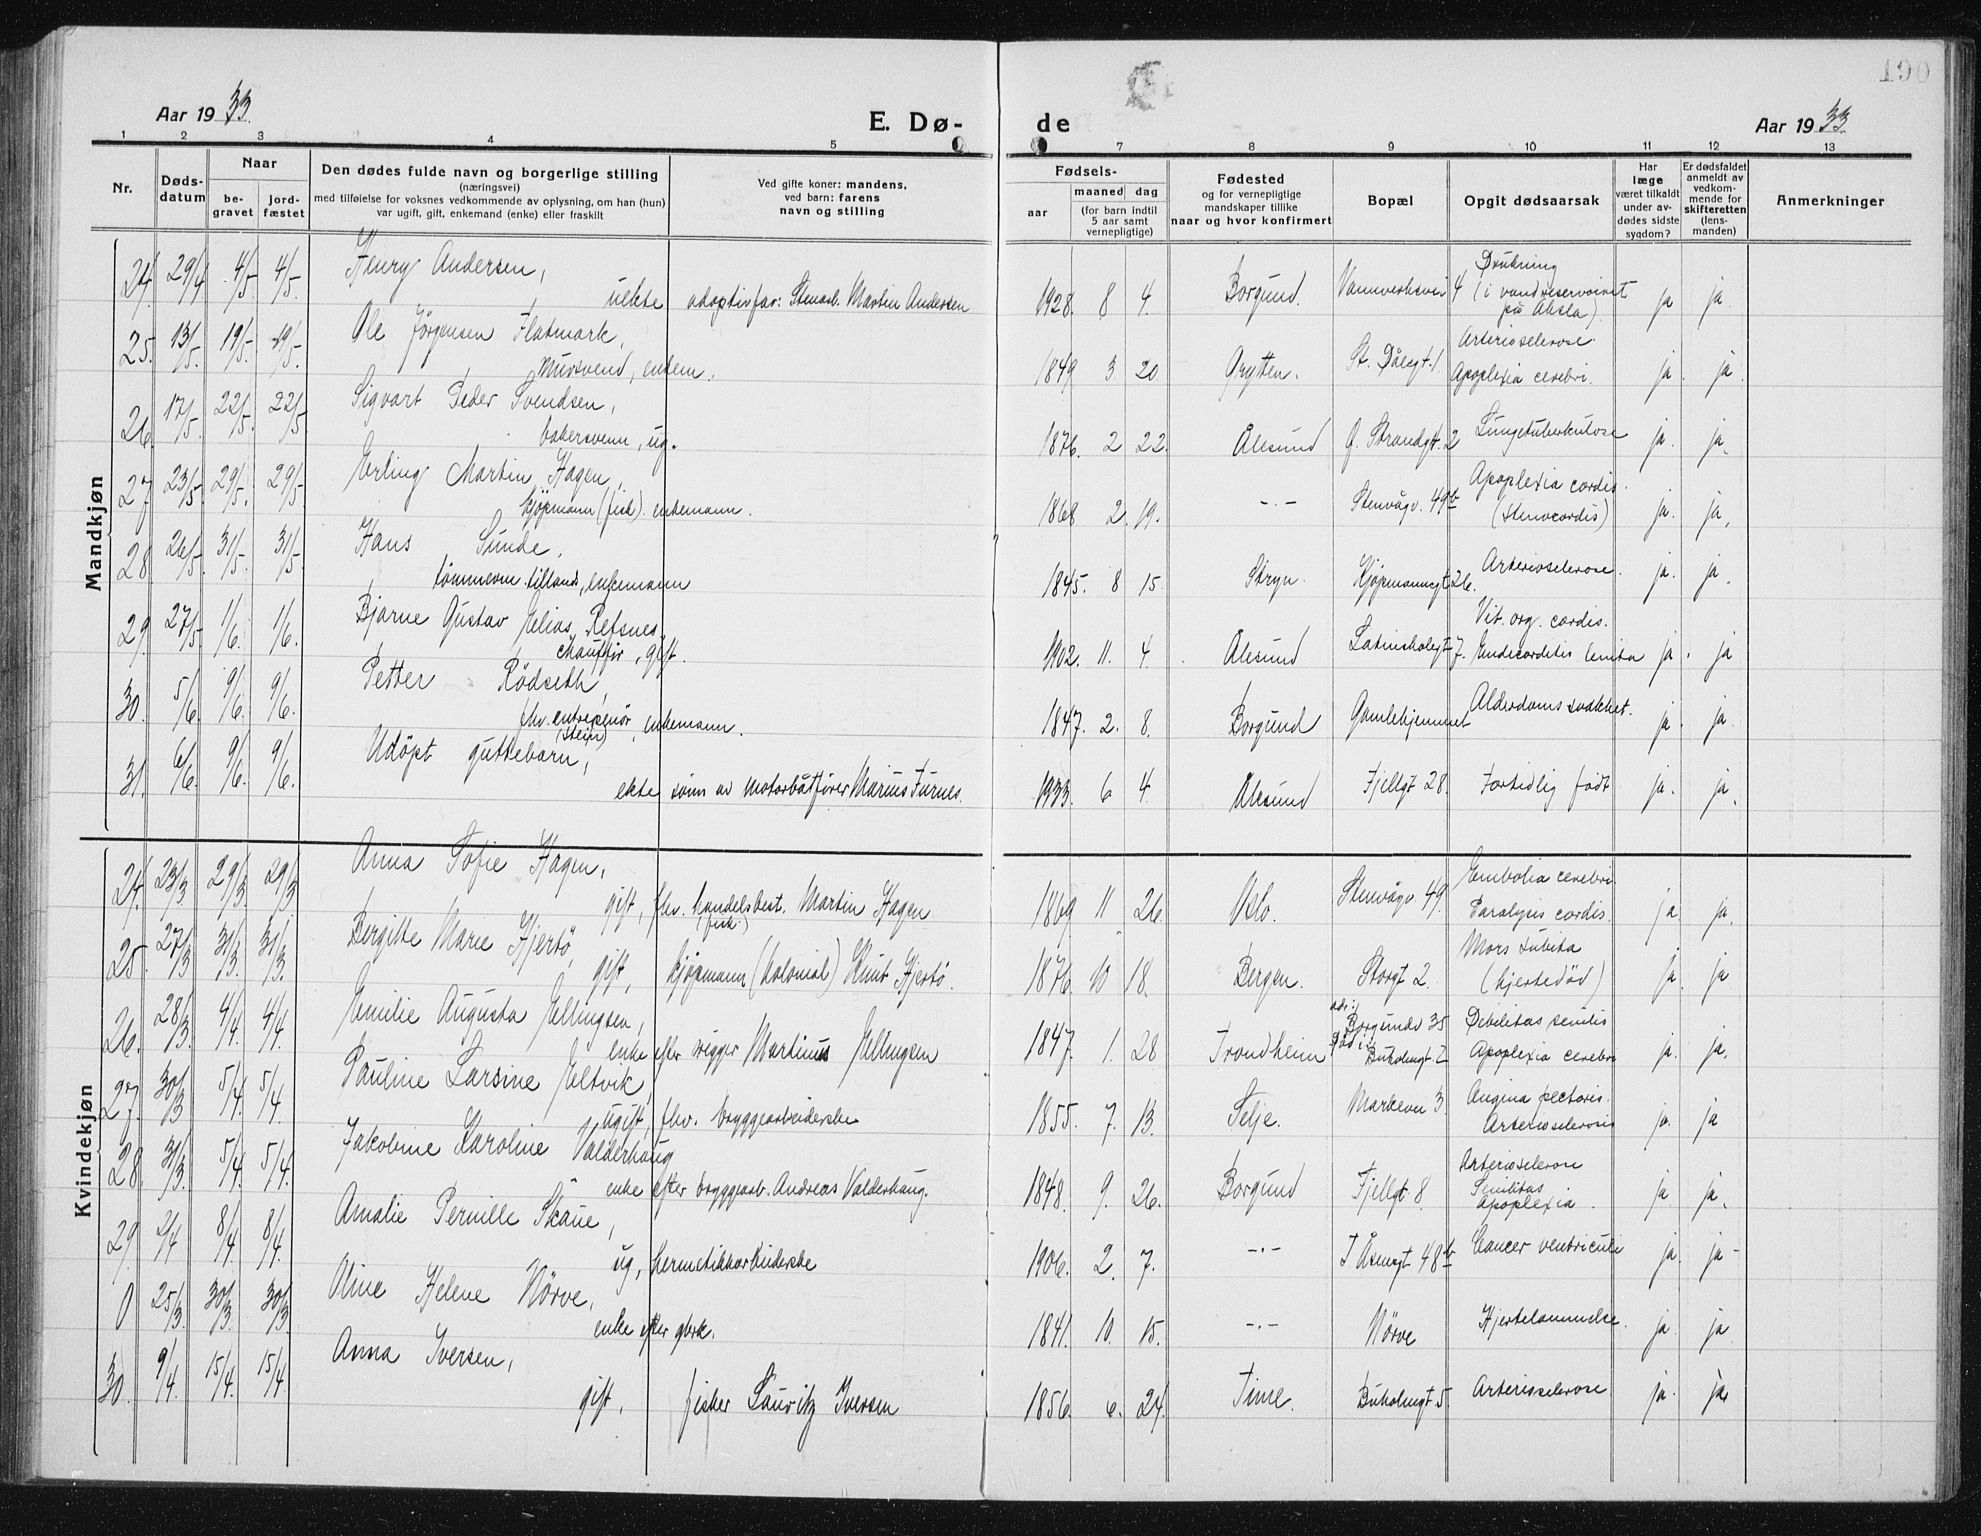 190
Aar 1933.
E. Dø-
de
Aar 1933.
1 2 3 4 5 7 8 9 10 11 12 13
Nr.
Døds-
datum
Naar
be-
gravet
jord-
fæstet
Den dødes fulde navn og borgerlige stilling
(næringsvei)
med tilføielse for voksnes vedkommende av oplysning, om han (hun)
var ugift, gift, enkemand (enke) eller fraskilt
Ved gifte koner: mandens,
ved barn: farens
navn og stilling
Fødsels-
aar
maaned
dag
(for barn indtil
5 aar samt
vernepligtige)
Fødested
og for vernepligtige
mandskaper tillike
naar og hvor konfirmert
Bopæl
Opgit dødsaarsak
Har
læge
været tilkaldt
under av-
dødes sidste
sygdom?
Er dødsfaldet
anmeldt av
vedkom-
mende for
skifteretten
(lens-
manden)
Anmerkninger
Mandkjøn
24. 29/4 4/5. 4/5. Henry Andersen,
uekte adoptivfar: Stenarb. Martin Andersen 1928. 8 4. Borgund. Vannverksvei 4 Drukning
(i vandreservoiret
på Aksla) ja ja
25. 13/5. 19/5. 19/5. Ole Jörgensen Flatmark,
Mursvend, enkem. 1849 3 20 Grytten. St. Olavsgt. 1 Arteriosclerose
Apoplexia cerebri. ja. ja.
26. 17/5. 22/5. 22/5. Sigvart Peder Svendsen,
bakersvenn, ug. 1876. 2 22. Ålesund Ø. Strandgt. 2 Lungetuberkulose ja. ja.
27 23/5. 29/5. 29/5. Erling Martin Hagen,
kjöpmann (fisk). enkemann. 1868 2. 19. -"- Stenvågv. 49b Apoplexia cordis.
(Stenocordis) ja. ja.
28. 26/5. 31/5. 31/5. Hans Sunde,
tömmerm. tillands, enkemann 1845. 8 15. Stryn. Kjöpmannsgt. 26. Arteriosclerose. ja. ja.
29. 27/5 1/6. 1/6. Bjarne Gustav Elias Refsnes,
chaufför, gift. 1902. 11. 4. Ålesund Latinskolegt. 7. Vit. org. cordis.
Endecorditis lenta ja. ja
30. 5/6. 9/6. 9/6. Petter Rödseth,
fhv. entrepenör
(Stein), enkemann. 1847. 2. 8. Borgund Gamlehjemmet Alderdomssvakhet. ja. ja.
31. 6/6. 9/6. 9/6. Udöpt guttebarn,
ekte sönn av Motorbåtförer Marius Furnes. 1933. 6 4. Ålesund Fjellgt 28. Fortidlig födt ja. ja.
Kvindekjøn
24. 23/3 29/3 29/3 Anna Sofie Hagen,
gift, fhv. handelsbest. Martin Hagen
(fisk.) 1869 11 26 Oslo. Stenvågv. 49. Embolia cerebri.
Paralysis cordis. ja. ja.
25. 27/3 31/3. 31/3. Birgitte Marie Hjertö,
gift, kjöpmann (kolonial) Knut Hjertö. 1876. 10 18. Bergen. Storgt 2. Mors subita
(hjertedöd) ja. ja
26. 28/3. 4/4. 4/4. Emilie Augusta Ellingsen,
enke efter rigger Martinus Ellingsen 1847. 1. 28 Trondheim Borgundv 35
Buholmgt. 2 Debilitas senilis
Apoplexia cerebri ja. ja.
27. 30/3 5/4. 5/4. Pauline Larsine Eltvik,
ugift, fhv. bryggearbeiderske 1855. 7. 13. Selje. Markevn 3. Angina pectoris.
Arteriosclerosis ja. ja
28. 31/3. 5/4. 5/4. Jakobine Karoline Valderhaug
enke efter bryggearb. Andreas Valderhaug. 1848. 9. 26. Borgund Fjellgt 8. Arteriosclerose
Senilitas
Apoplexia. ja ja.
29. 2/4 8/4. 8/4. Amalie Pernille Skaue,
ug, hermetikkarbeiderske 1906. 2. 7. -"- T. Åsensgt 48b Cancer ventriculi ja. ja-
0 25/3. 30/3. 30/3. Oline Helene Nörve,
enke efter gbrk. 1841. 10. 15. -"- Nörve Hjertelammelse. ja ja
30. 9/4. 15/4. 15/4. Anna Iversen,
gift, fisker Lauritz Iversen 1856. 6. 24. Time. Buholmgt 5. Arteriosclerose ja. ja.